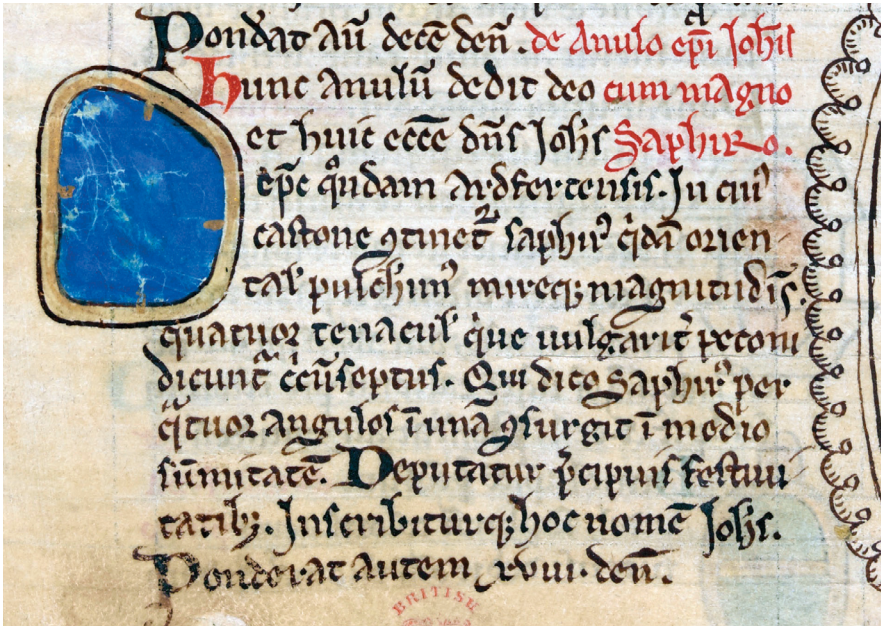 Pondat aũ decẽ deñ. de Anulo ep̃i Joħis
Hunc anulũ dedit deo cum magno
et huic ecc̃e dñs Joħs Saphiro.
ep̃c qͦndam Ardfertensis. In cuiꝰ
castone ꝯtinet᷑ saphirꝰ qͥdã orien
tal' pulcħimꝰ mireqꝫ magnitudĩs.
quatuor tenacul' q̃ue uulgarit᷑ peconi
dicunt᷑ c̃cũseptus. Qui dico Saphirꝰ per
qͣtuor angulos ĩ unã ꝯsurgit ĩ medio
sũmitatẽ. Deputatur p̃cipuis festiui
tatibꝫ. Inscribiturqꝫ hoc nomẽ Joħs.
Ponderat autem xviii. deñ.
BRITISH